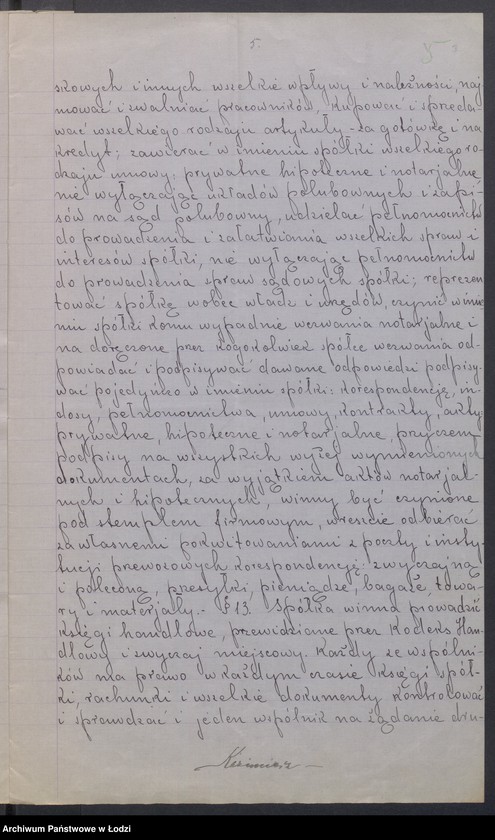 5.
5
skowych i innych wszelkie wpływy i należności, naj
mować i zwalniać pracowników, kupować i sprzeda-
wać wszelkiego rodzaju artykuły - za gotówkę i na
kredyt; zawierać w imieniu spółki wszelkiego ro-
dzaju umowy: prywatne hipoteczne i notarjalne
nie wyłączając układów polubownych i zapi-
sów na sąd polubowny, udzielać pełnomocnictw
do prowadzenia i załatwiania wszelkich spraw i
interesów spółki, nie wyłączając pełnomocnictw
do prowadzenia spraw sądowych spółki; reprezen
tować spółkę wobec władz i urzędów, czynić w imie
niu spółki komu wypadnie wezwania notarjalne i
na doręczone przez kogokolwiek spółce wezwania od-
powiadać i podpisywać dawane odpowiedzi podpisy-
wać pojedyńczo w imieniu spółki: korespondencję, in-
dosy, pełnomocnictwa, umowy, kontrakty, akty
prywatne, hipoteczne i notarjalne, przyczem
podpisy na wszystkich wyżej wymienionych
dokumentach, za wyjątkiem aktów notarjal-
nych i hipotecznych, winny być czynione
pod stemplem firmowym, wreszcie odbierać
za własnemi pokwitowaniami z poczty i insty-
tucji przewozowych korespondencję: zwyczajną
i poleconą, przesyłki, pieniądze, bagaże, towa-
ry i materjały. - § 13. Spółka winna prowadzić
księgi handlowe, przewidziane przez Kodeks Han-
dlowy i zwyczaj miejscowy. Każdy ze wspólni-
ków ma prawo w każdym czasie księgi spół-
ki, rachunki i wszelkie dokumenty kontrolować
i sprawdzać i jeden wspólnik na żądanie dru-
Archiwum Państwowe w Łodzi